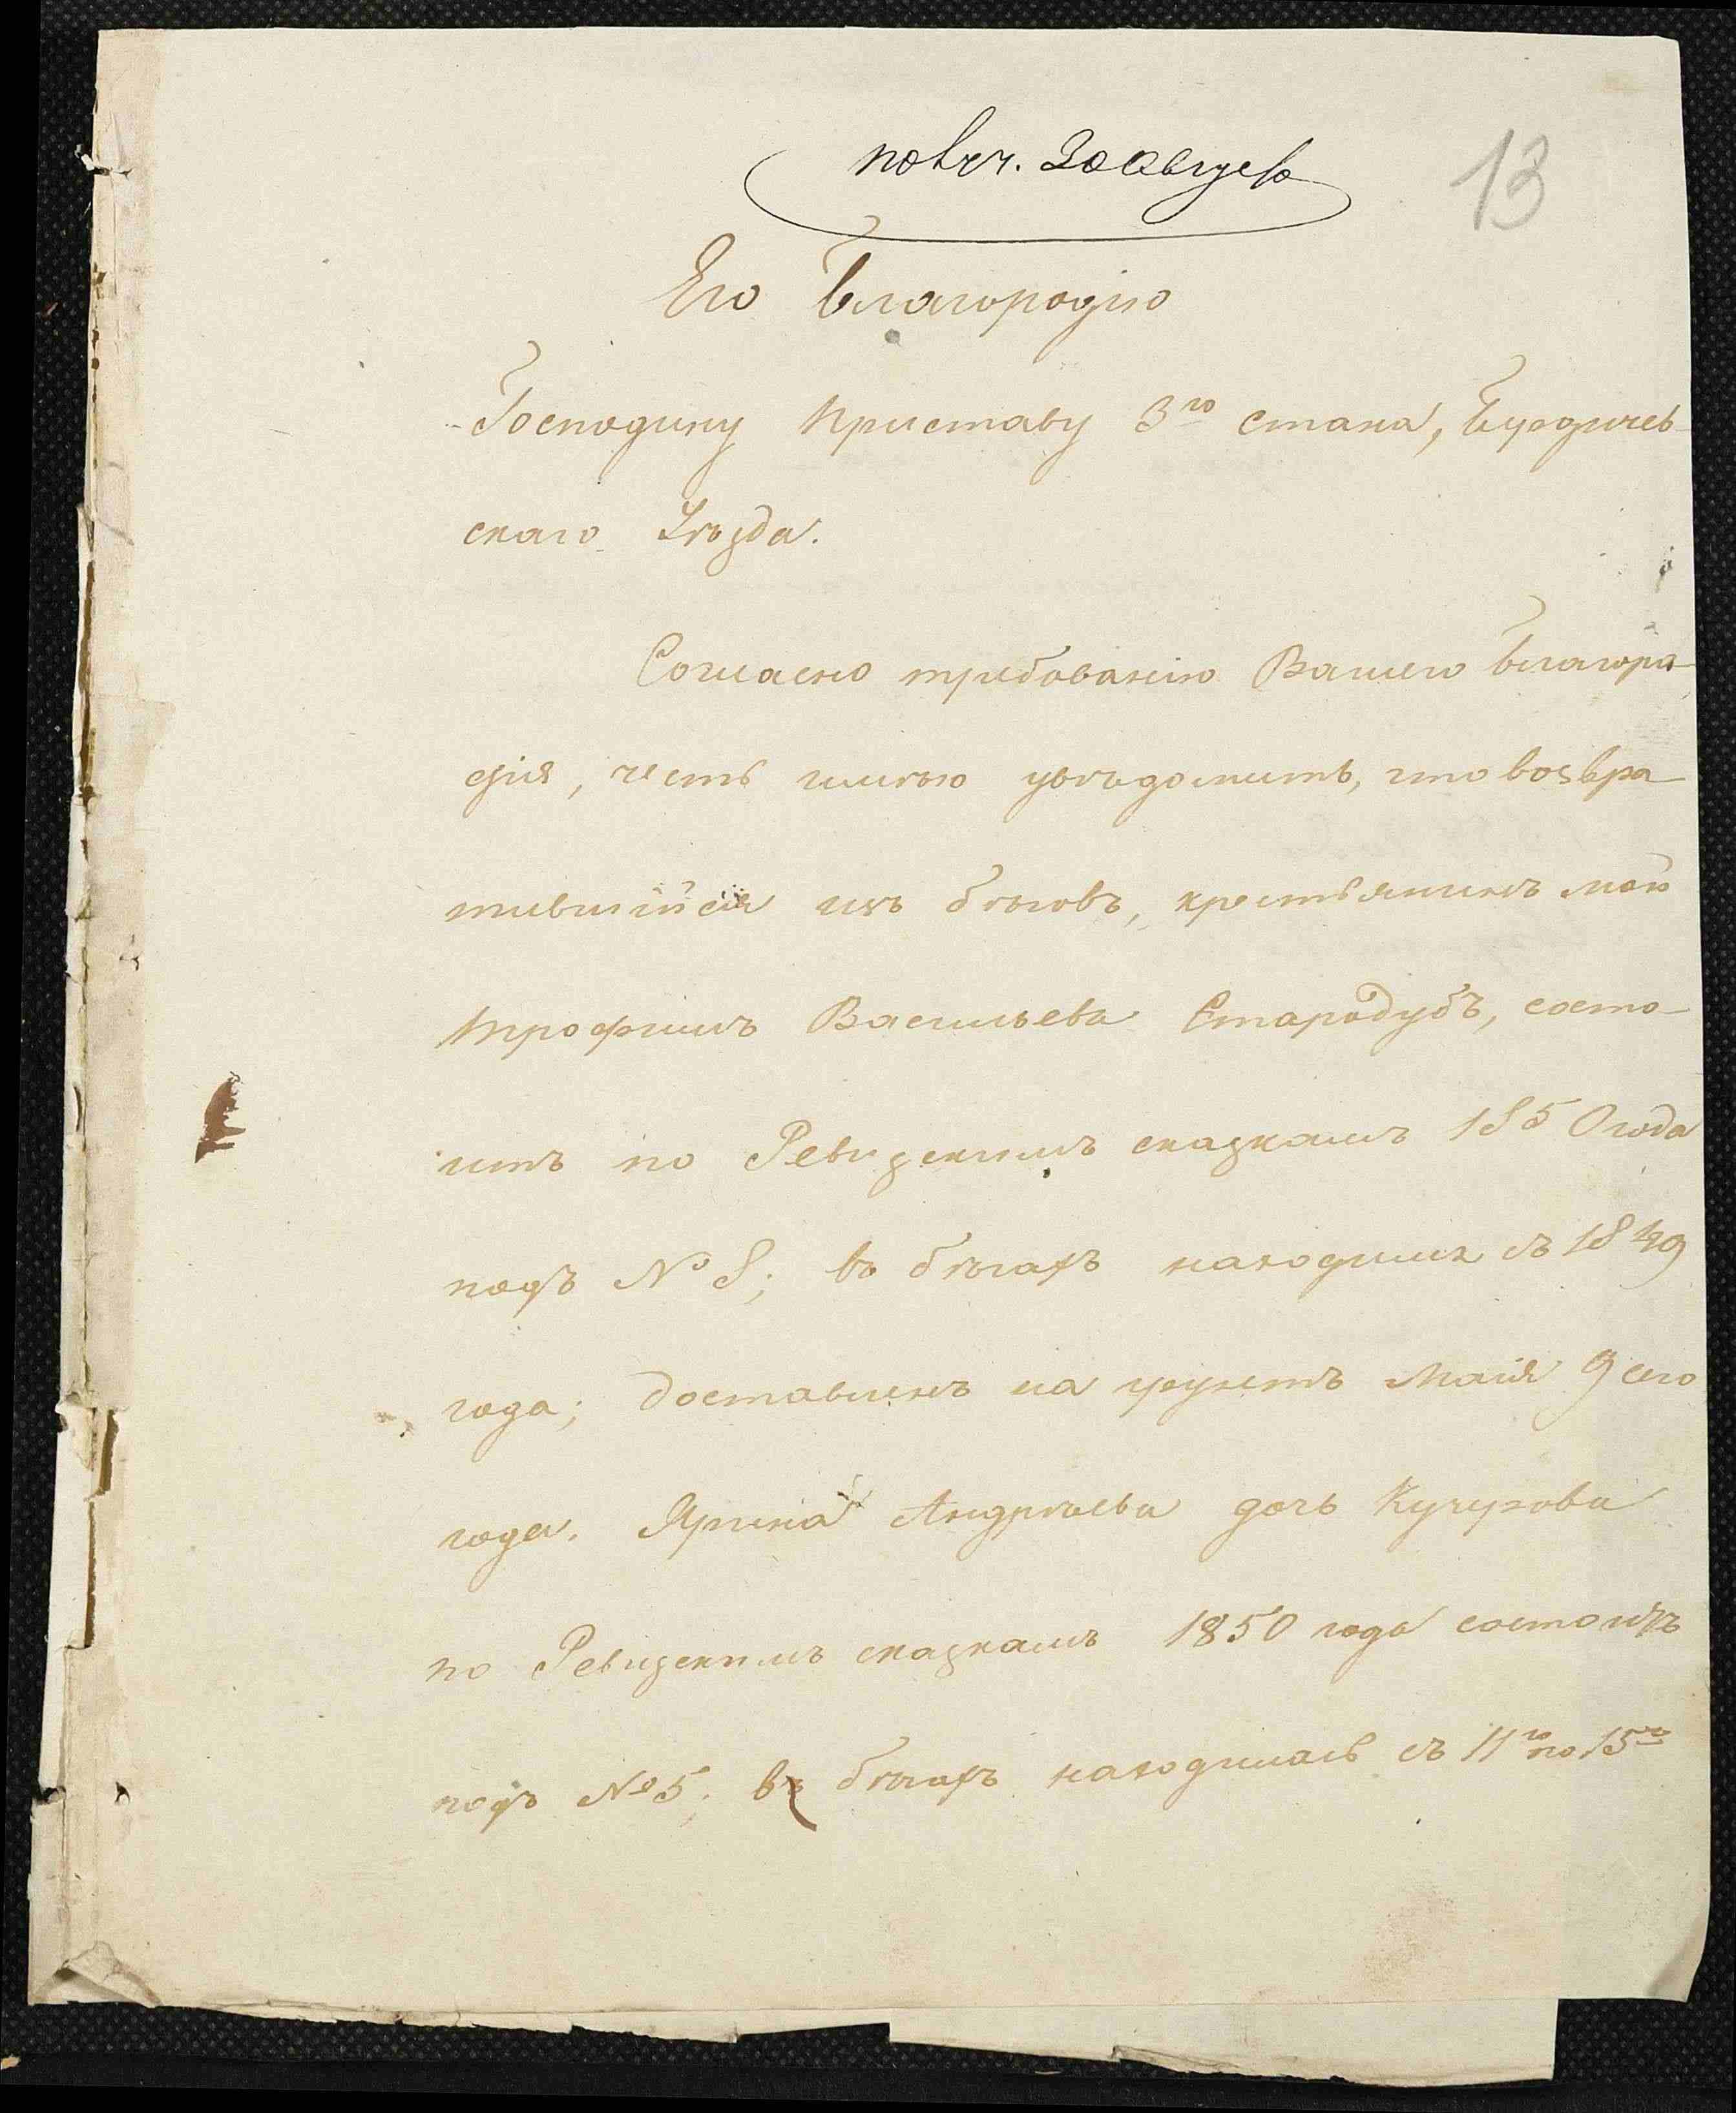 получ. 30 августа
13
Его Благородію
Господину Приставу 3го стана, Бердичев-
скаго Уѣзда.
Согласно требованію Вашего Благоро-
дія, честь имѣю увѣдомить, что возвра-
тившійся изъ бѣговъ, крестьянинъ мой
Трофимъ Васильевъ Стародубъ, состо-
итъ по Ревизскимъ сказкамъ 1850 года
подъ № 8; въ бѣгахъ находился съ 1849
года; доставленъ на грунтъ Маія 9 сего
года. Ярина Андрѣева дочь Кучерова
по Ревизскимъ сказкамъ 1850 года состоитъ
подъ № 5; въ бѣгахъ находилась съ 11го по 15го